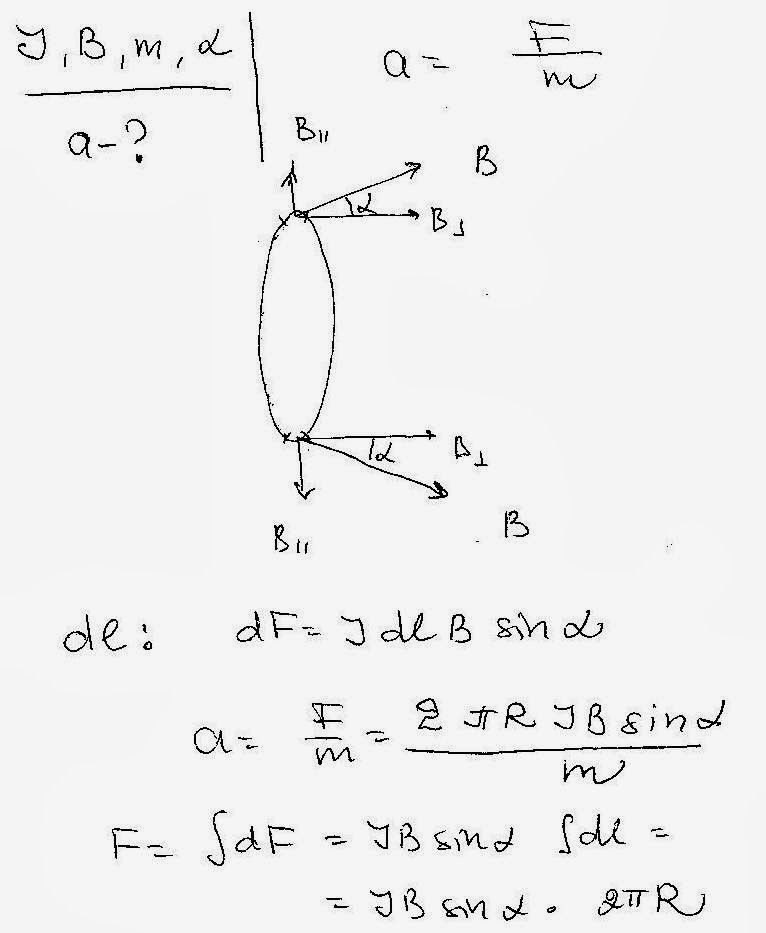 J, B, m, α
a-?
a = F/m
B||
B
α
B⊥
α
B⊥
B||
B
dl: dF = J dl B sin α
a = F/m = 2πR JB sin α / m
F = ∫dF = JB sin α ∫dl =
= JB sin α · 2πR